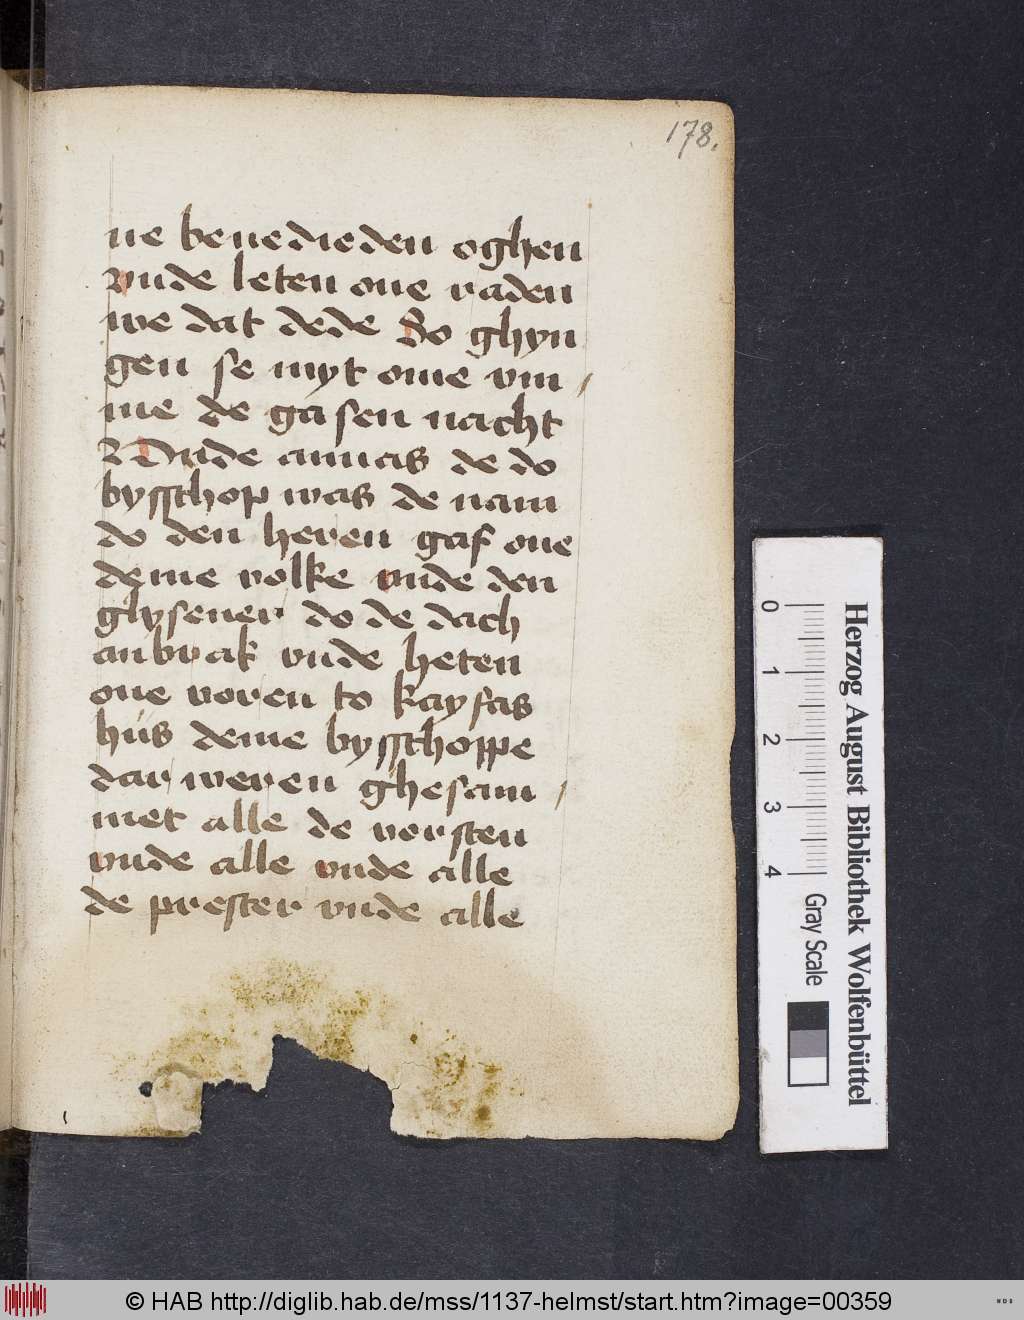 178.
ne benedieden oghen
vnde leten one raden
we dat dede do ghyn
gen se myt ome vm /
me de gasen nacht
Vnde annas de do
bysschop was de nam
do den heren gaf one
deme volke vnde den
glysener do de dach
anbrak vnde heten
one voren to kayfas
hus deme bysschoppe
dar weren ghesam /
met alle de vorsten
vnde alle vnde alle
de prester vnde alle
Herzog August Bibliothek Wolfenbüttel
0 1 2 3 4 Gray Scale
© HAB http://diglib.hab.de/mss/1137-helmst/start.htm?image=00359